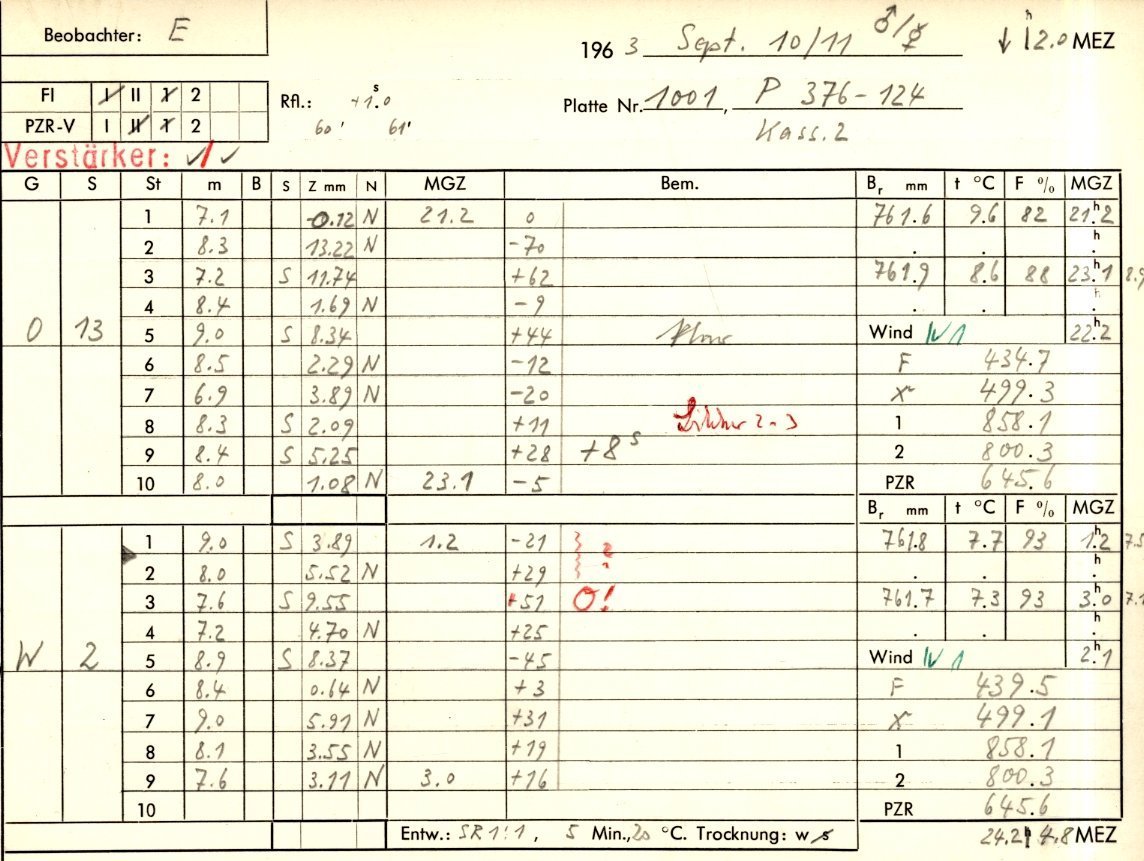 Beobachter: E
1963 Sept. 10/11 ♂/☿ ↓ 12.0 h MEZ
FI I II 1 2
PZR-V I II 1 2
Rfl.: +1.0 s
60' 61'
Platte Nr. 1001, P 376-124
Kass. 2
Verstärker: ✓/✓
G S St m B S Z mm N MGZ Bem. Br mm t °C F % MGZ
1 7.1 -0.12 N 21.2 0 761.6 9.6 82 21.2 h
2 8.3 13.22 N -70 . . h
3 7.2 S 11.74 +62 761.9 8.6 88 23.1 h 8.9
4 8.4 1.69 N -9 . . h
O 13 5 9.0 S 8.34 +44 Wind W 1 22.2 h
6 8.5 2.29 N -12 F 434.7
7 6.9 3.89 N -20 X 499.3
8 8.3 S 2.09 +11 2-3 1 858.1
9 8.4 S 5.25 +28 +8 s 2 800.3
10 8.0 1.08 N 23.1 -5 PZR 645.6
Br mm t °C F % MGZ
1 9.0 S 3.89 1.2 -21 761.8 7.7 93 1.2 h 7.5
2 8.0 5.52 N +29 ? . . h
3 7.6 S 9.55 +51 O! 761.7 7.3 93 3.0 h 7.1
4 7.2 4.70 N +25 . . h
W 2 5 8.9 S 8.37 -45 Wind W 1 2.1 h
6 8.4 0.64 N +3 F 439.5
7 9.0 5.91 N +31 X 499.1
8 8.1 3.55 N +19 1 858.1
9 7.6 3.11 N 3.0 +16 2 800.3
10 PZR 645.6
Entw.: SR 1:1, 5 Min., 20 °C. Trocknung: w s 24.2 4.8 MEZ